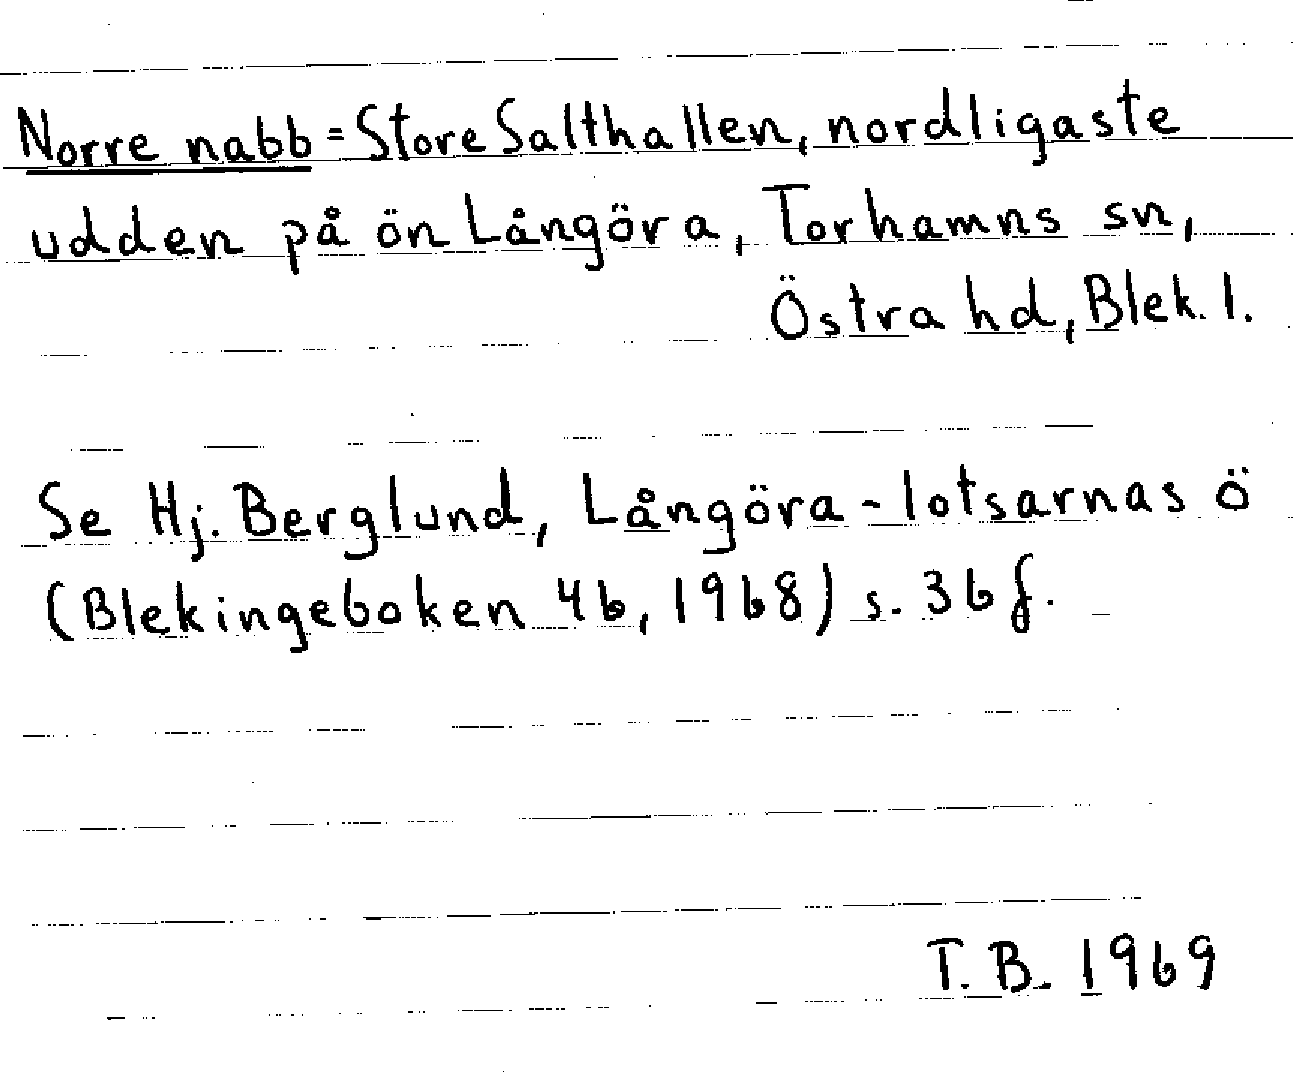 Norre nabb = Store Salthallen, nordligaste
udden på ön Långöra, Torhamns sn,
Östra hd, Blek. l.
Se Hj. Berglund, Långöra - lotsarnas ö
(Blekingeboken 46, 1968) s. 36 f.
T. B. 1969